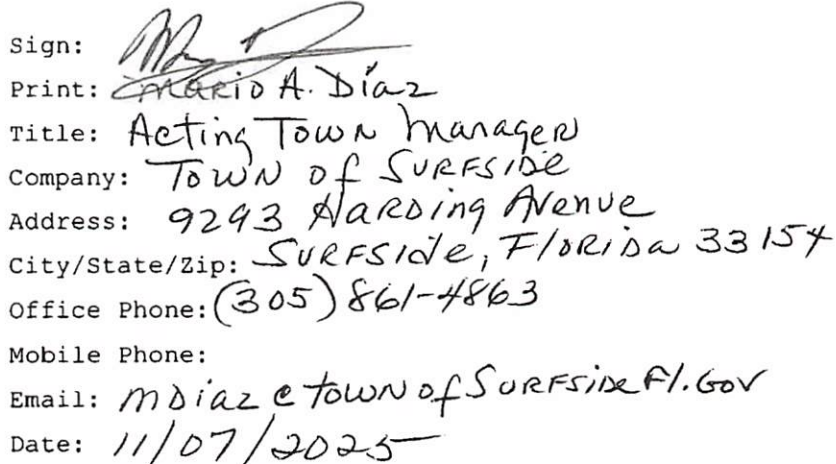 Sign:
Print: Mario A. Díaz
Title: Acting Town Manager
Company: Town of Surfside
Address: 9293 Harding Avenue
City/State/Zip: Surfside, Florida 33154
Office Phone: (305) 861-4863
Mobile Phone:
Email: MDiaz@townofSurfsideFl.Gov
Date: 11/07/2025